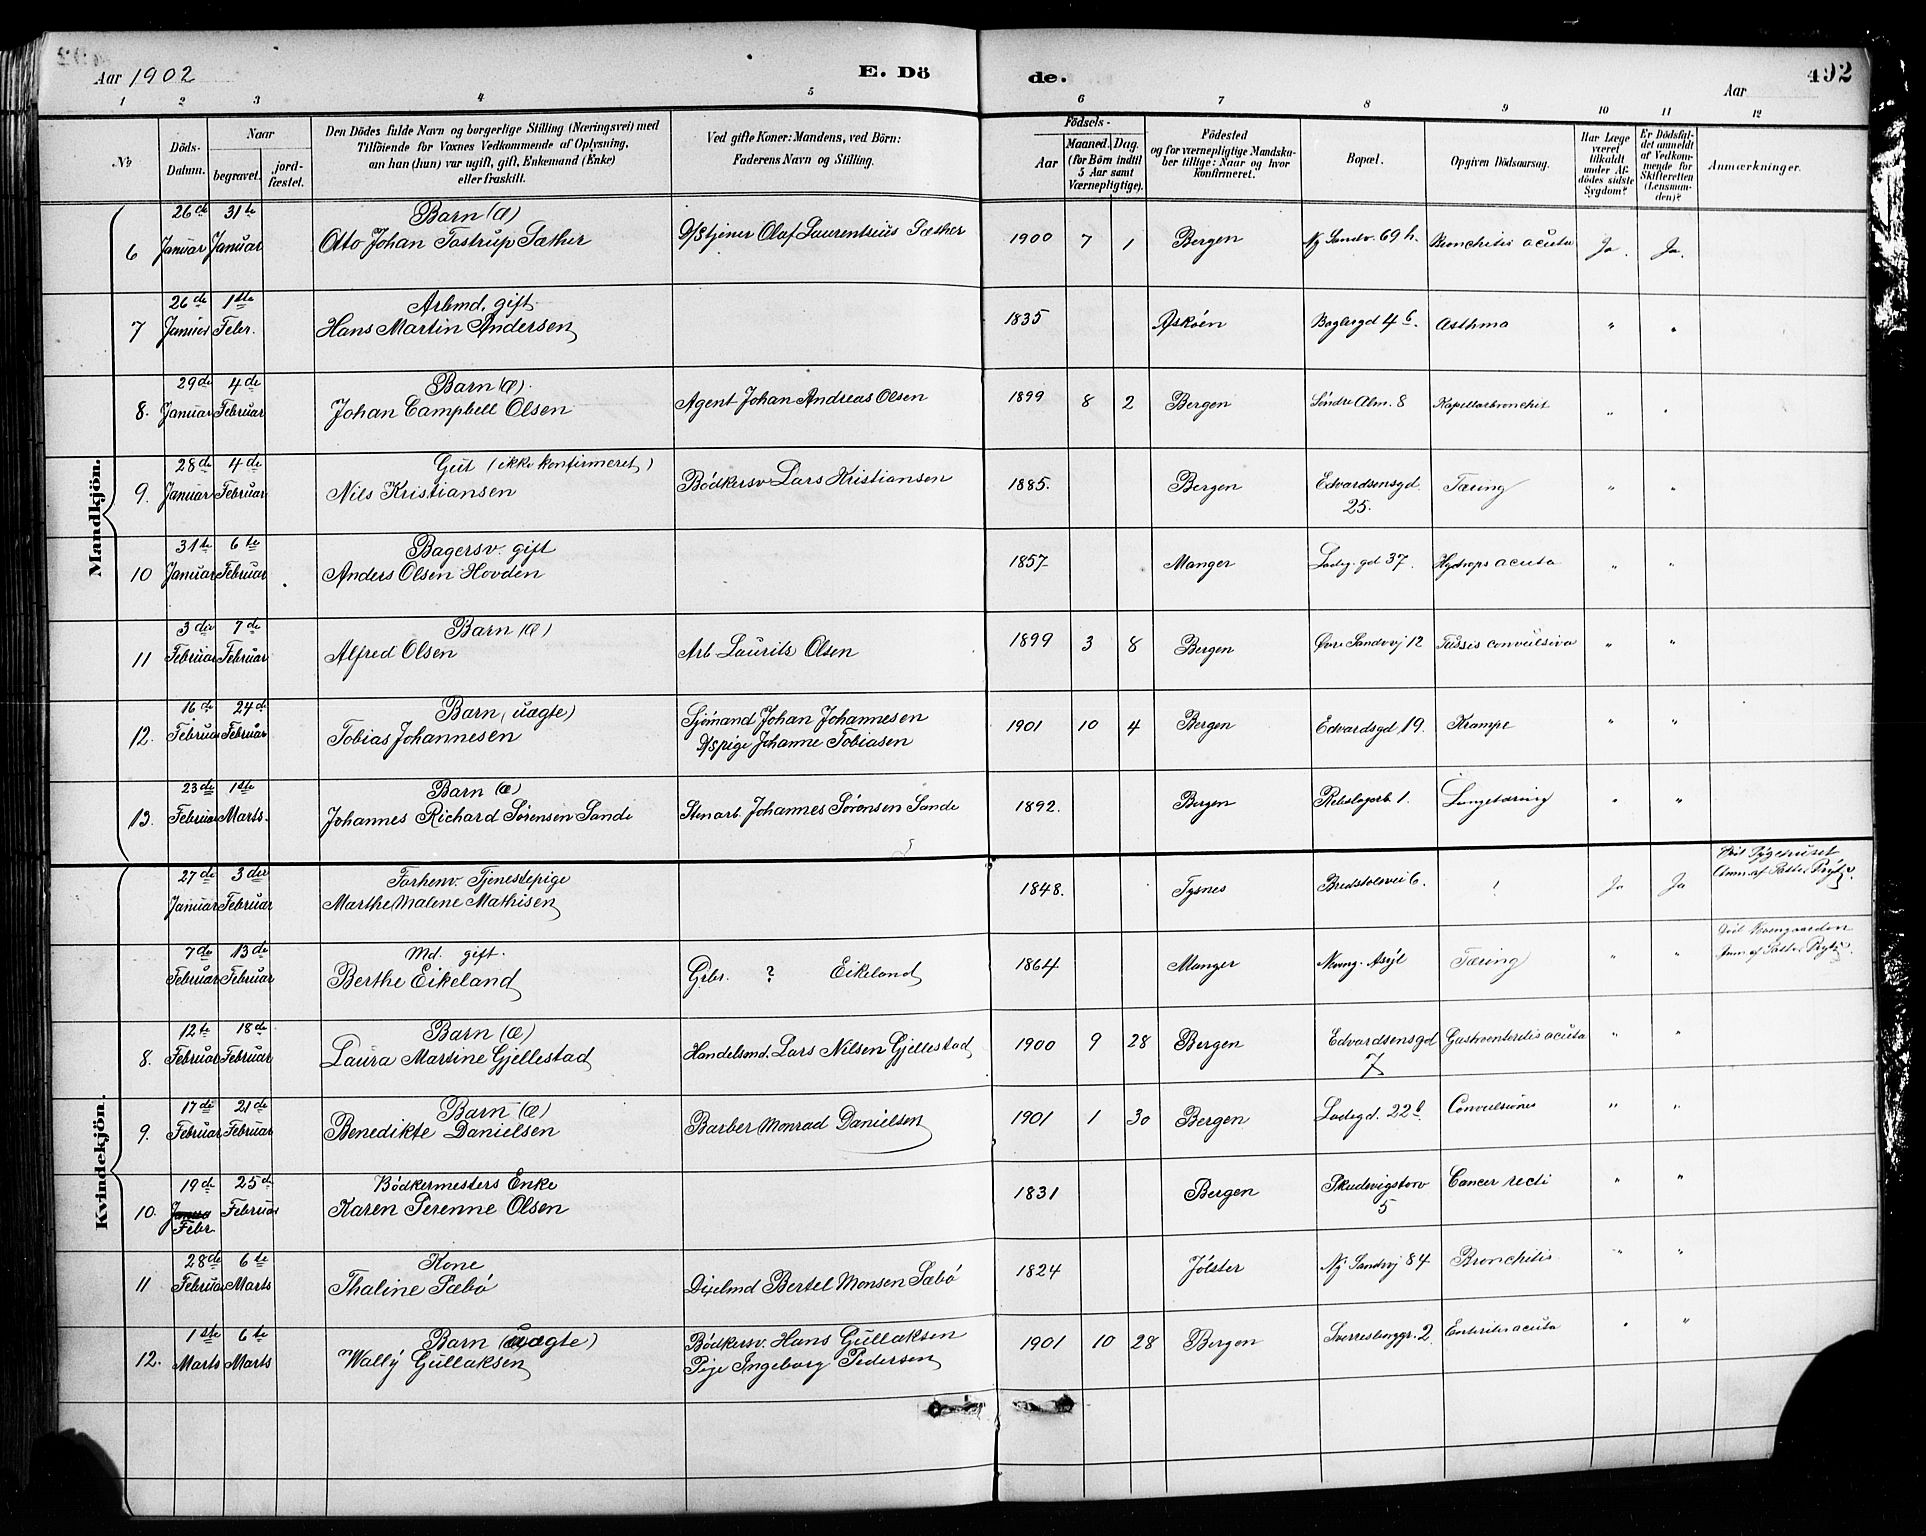 Aar 1902
E. Döde.
492
Aar
1 2 3 4 5 6 7 8 9 10 11 12
No
Döds-Datum.
Naar begravet. jordfæstet.
Den Dödes fulde Navn og borgerlige Stilling (Næringsvei) med Tilföiende for Voxnes Vedkommende af Oplysning, om han (hun) var ugift, gift, Enkemand (Enke) eller fraskilt.
Ved gifte Koner: Mandens, ved Börn: Faderens Navn og Stilling.
Födsels-
Aar Maaned. Dag. (for Börn indtil 5 Aar samt Værnepligtige).
Födested og for værnepligtige Mandskaber tillige: Naar og hvor konfirmeret.
Bopæl.
Opgiven Dödsaarsag.
Har Læge været tilkaldt under Afdödes sidste Sygdom?
Er Dödsfaldet anmeldt af Vedkommende for Skifteretten (Lensmanden)?
Anmærkninger.
Mandkjön.
6 26de Januar 31te Januar Barn (Æ) Otto Johan Tostrup Sæther D/Stjener Olaf Laurentzius Sæther 1900 7 1 Bergen Ny Sandv. 69 h. Bronchitis acuta Ja. Ja.
7 26de Januar 1ste Febr. Arbmd. gift. Hans Martin Andersen 1835 Askøen Baglergd 4 b. Asthma " "
8. 29de Januar 4de Februar Barn (Æ). Johan Campbell Olsen Agent Johan Andreas Olsen 1899 8 2 Bergen Søndre Alm. 8 Kapellarbronchit " "
9. 28de Januar 4de Februar Gut (ikke konfirmeret) Nils Kristiansen Bødkersv Lars Kristiansen 1885. Bergen Edvardsensgd. 25. Tæring " "
10 31te Januar 6te Februar Bagersv. gift Anders Olsen Hovden 1857 Manger Ladeg. gd 37. Hydrops acuta " "
11 3die Februar 7de Februar Barn (Æ) Alfred Olsen Arb Laurits Olsen 1899 3 8 Bergen Øvre Sandvj 12 Tussis convulsiva " "
12. 16de Februar 24de Februar Barn (uægte) Tobias Johannesen Sjømand Johan Johannesen D/Spige Johanne Tobiasen 1901 10 4 Bergen Edvardsgd 19. Krampe " "
13. 23de Februar 1ste Marts. Barn (Æ) Johannes Richard Sørensen Sande Stenarb. Johannes Sørensen Sande 1892. Bergen Rebslagerb 1. Lungetæring " "
Kvindekjön.
27de Januar 3die Februar Forhenv. Tjenestepige Marthe Malene Mathisen 1848. Tysnes Bredstolsvei 6. ! Ja Ja Død Sygehuset Anm. af Pastor
7de Februar 13de Februar Md. gift. Berthe Eikeland Grbr. ? Eikeland 1864 Manger Asÿl Tæring " " Død Anm af Pastor
8. 12te Februar 18de Februar Barn (Æ) Laura Martine Gjellestad Handelsmd. Lars Nilsen Gjellestad 1900 9 28 Bergen Edvardsensgd 7 Gastroenteritis acuta " "
9. 17de Februar 21de Februar Barn (Æ) Benedikte Danielsen Barber Monrad Danielsen 1901 1 30 Bergen Ladegd. 22 b Convulsiones " "
10. 19de Febr 25de Februar Bødkermesters Enke Karen Serenne Olsen 1831 Bergen Skudevigstorv 5 Cancer recti " "
11 28de Februar 6te Marts Kone Thaline Sæbø Dixelmd Bertel Monsen Sæbø 1824 Jølster Ny Sandvj 84 Bronchitis " "
12. 1ste Marts 6te Marts Barn (uægte) Wally Gullaksen Bødkersv. Hans Gullaksen Pige Ingeborg Pedersen 1901 10 28 Bergen Sverresborggr. 2 Enteritis acuta " "